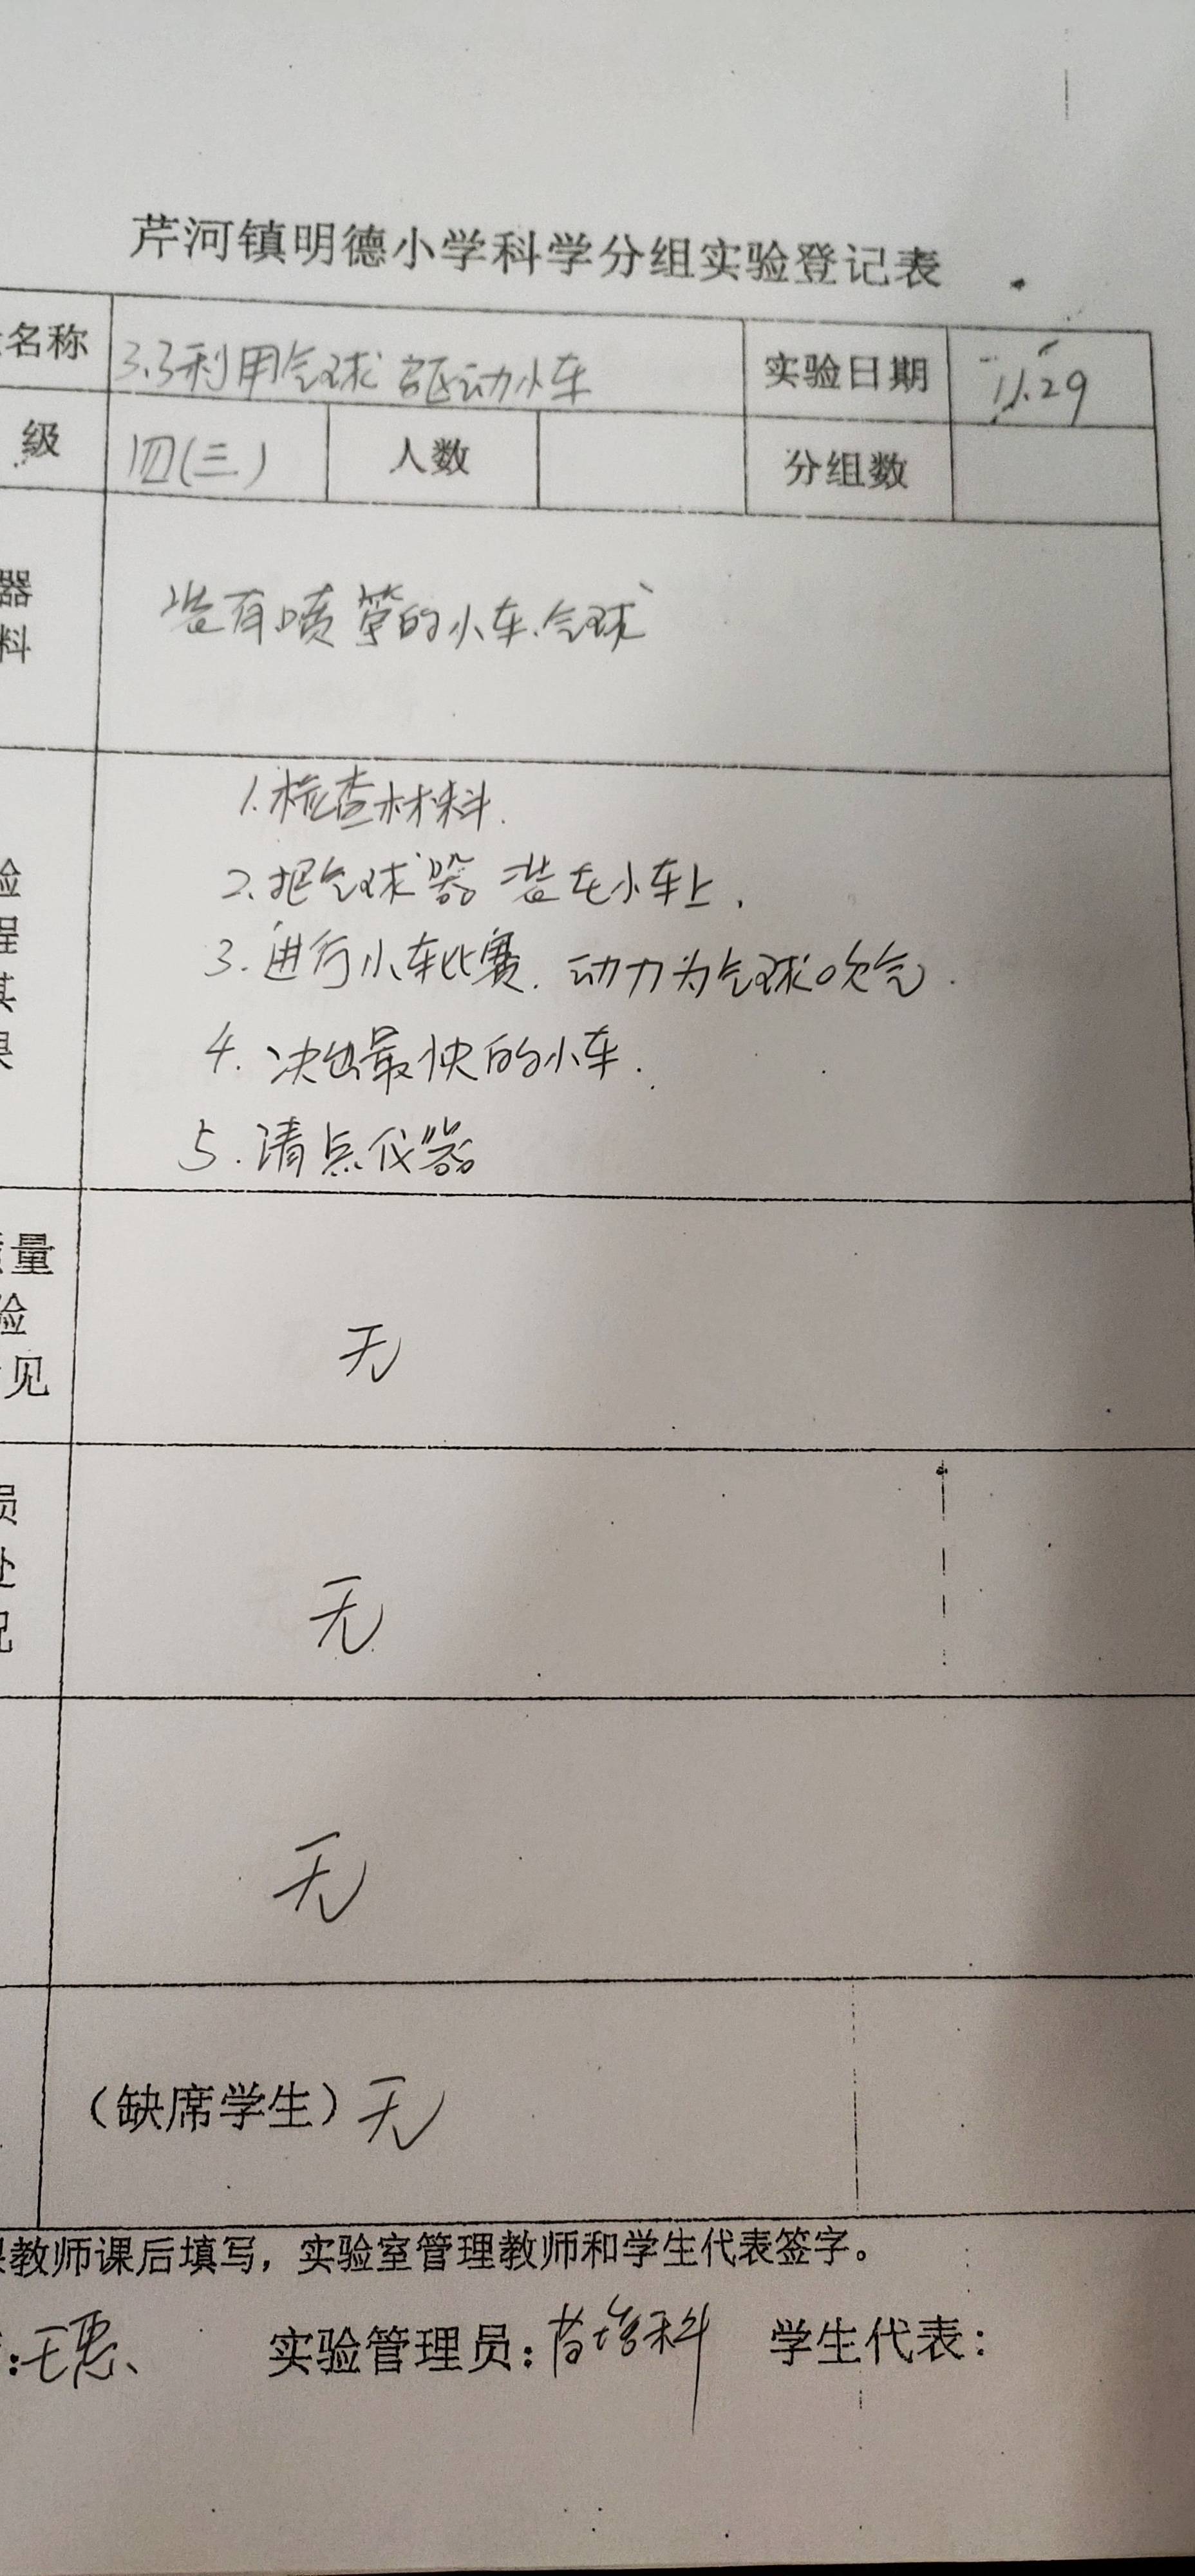 芹河镇明德小学科学分组实验登记表
名称 3.3利用气球驱动小车 实验日期 11.29
级 四(三) 人数 分组数
器
料
装有喷管的小车.气球
1.检查材料.
2.把气球器装在小车上.
验
程
其
果
3.进行小车比赛.动力为气球吹气.
4.决出最快的小车.
5.清点仪器
量
验
见
无
员
处
况
无
无
(缺席学生)无
教师课后填写，实验室管理教师和学生代表签字。
实验管理员: 学生代表: